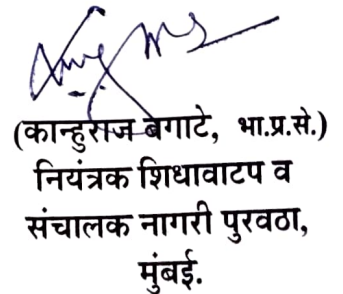 (कान्हुराज बगाटे, भा.प्र.से.)
नियंत्रक शिधावाटप व
संचालक नागरी पुरवठा,
मुंबई.